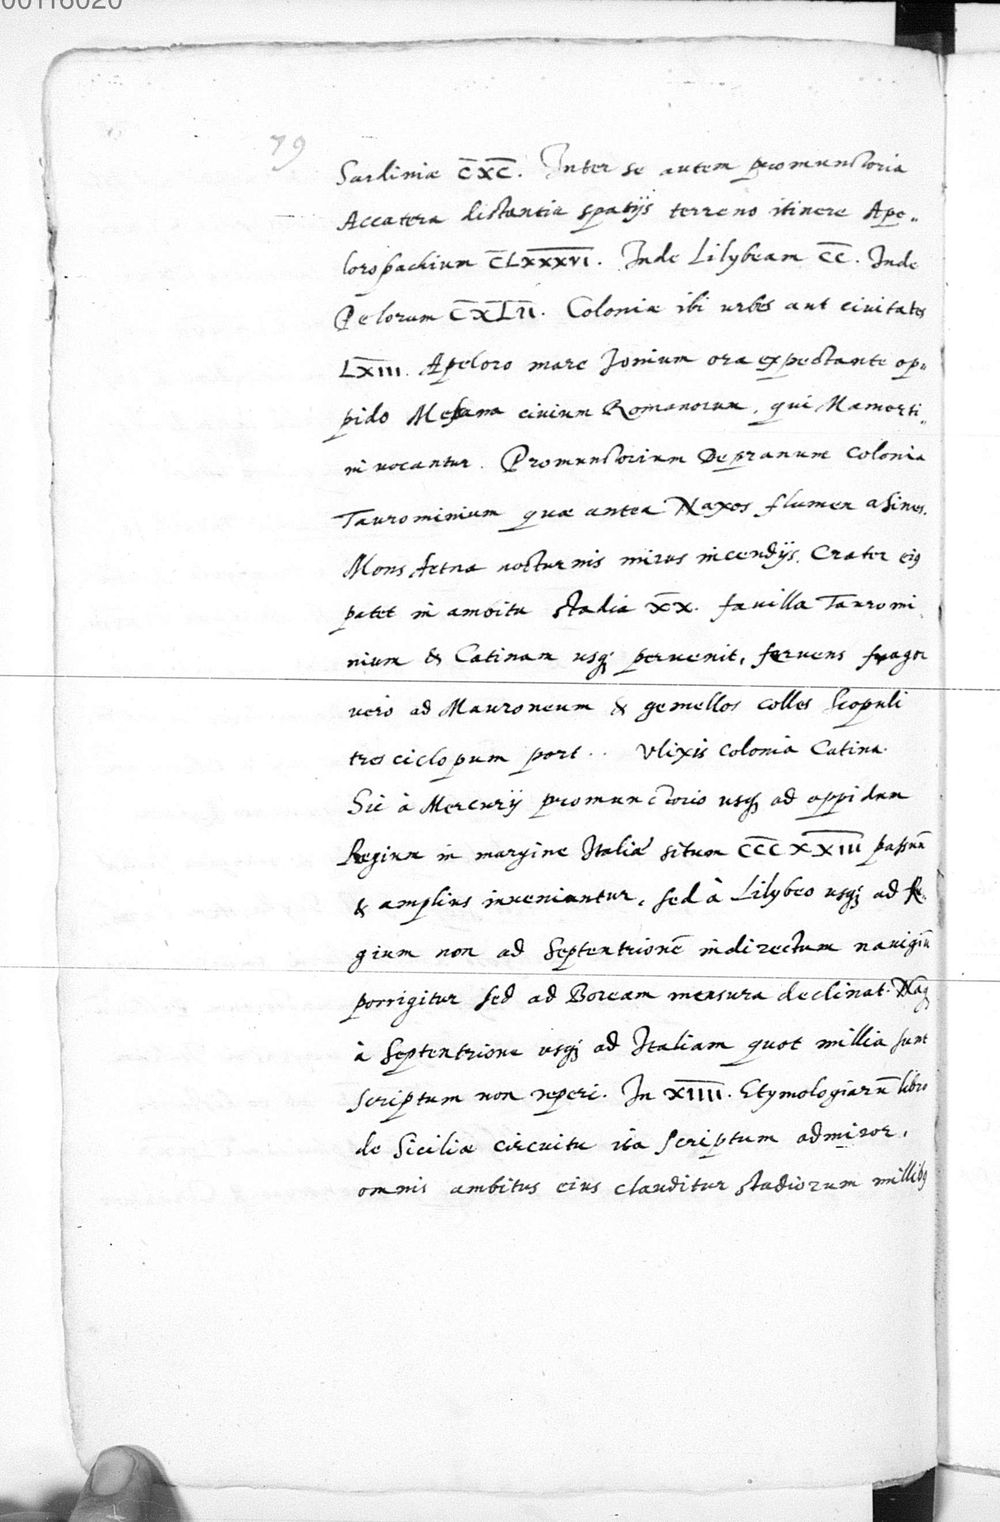 00116020
79
Sardiniæ C̅X̅C̅. Inter se autem promunctoria
Accatera distantia spatijs terreno itinere Ape„
loropachium C̅LX̅X̅X̅V̅I̅. Inde Lilybeam C̅C̅. Inde
Pelorum C̅X̅L̅I̅I̅. Coloniæ ibi urbes aut ciuitates
LX̅I̅I̅I̅. Apeloro mare Jonium ora expectante op„
pido Mesana ciuium Romanorum, qui Mamerti„
ni uocantur. Promunctorium Depranum Colonia
Taurominium quæ antea Naxos flumen asines.
Mons Aetna nocturnis mirus incendijs. Crater eiꝰ
patet in ambitu stadia X̅X̅. fauilla Tauromi„
nium & Catinam usq; peruenit, feruens fragor
vero ad Mauroneum & gemellos colles Scopuli
tres ciclopum port.. Vlixis colonia Catina.
Sic à Mercurij promunctorio usq; ad oppidum
Regium in margine Italiæ situm C̅C̅C̅ X̅X̅I̅I̅I̅ passuū
& amplius inueniuntur, sed à Lilybeo usq; ad Re„
gium non ad Septentrionē indirectum nauigiū
porrigitur sed ad Boream mensura declinat. Nāq;
à Septentrione usq; ad Italiam quot millia sunt
scriptum non reperi. In X̅I̅I̅I̅I̅. Etymologiarū libro
de Siciliæ circuitu ita scriptum admiror,
omnis ambitus eius clauditur stadiorum millibꝰ